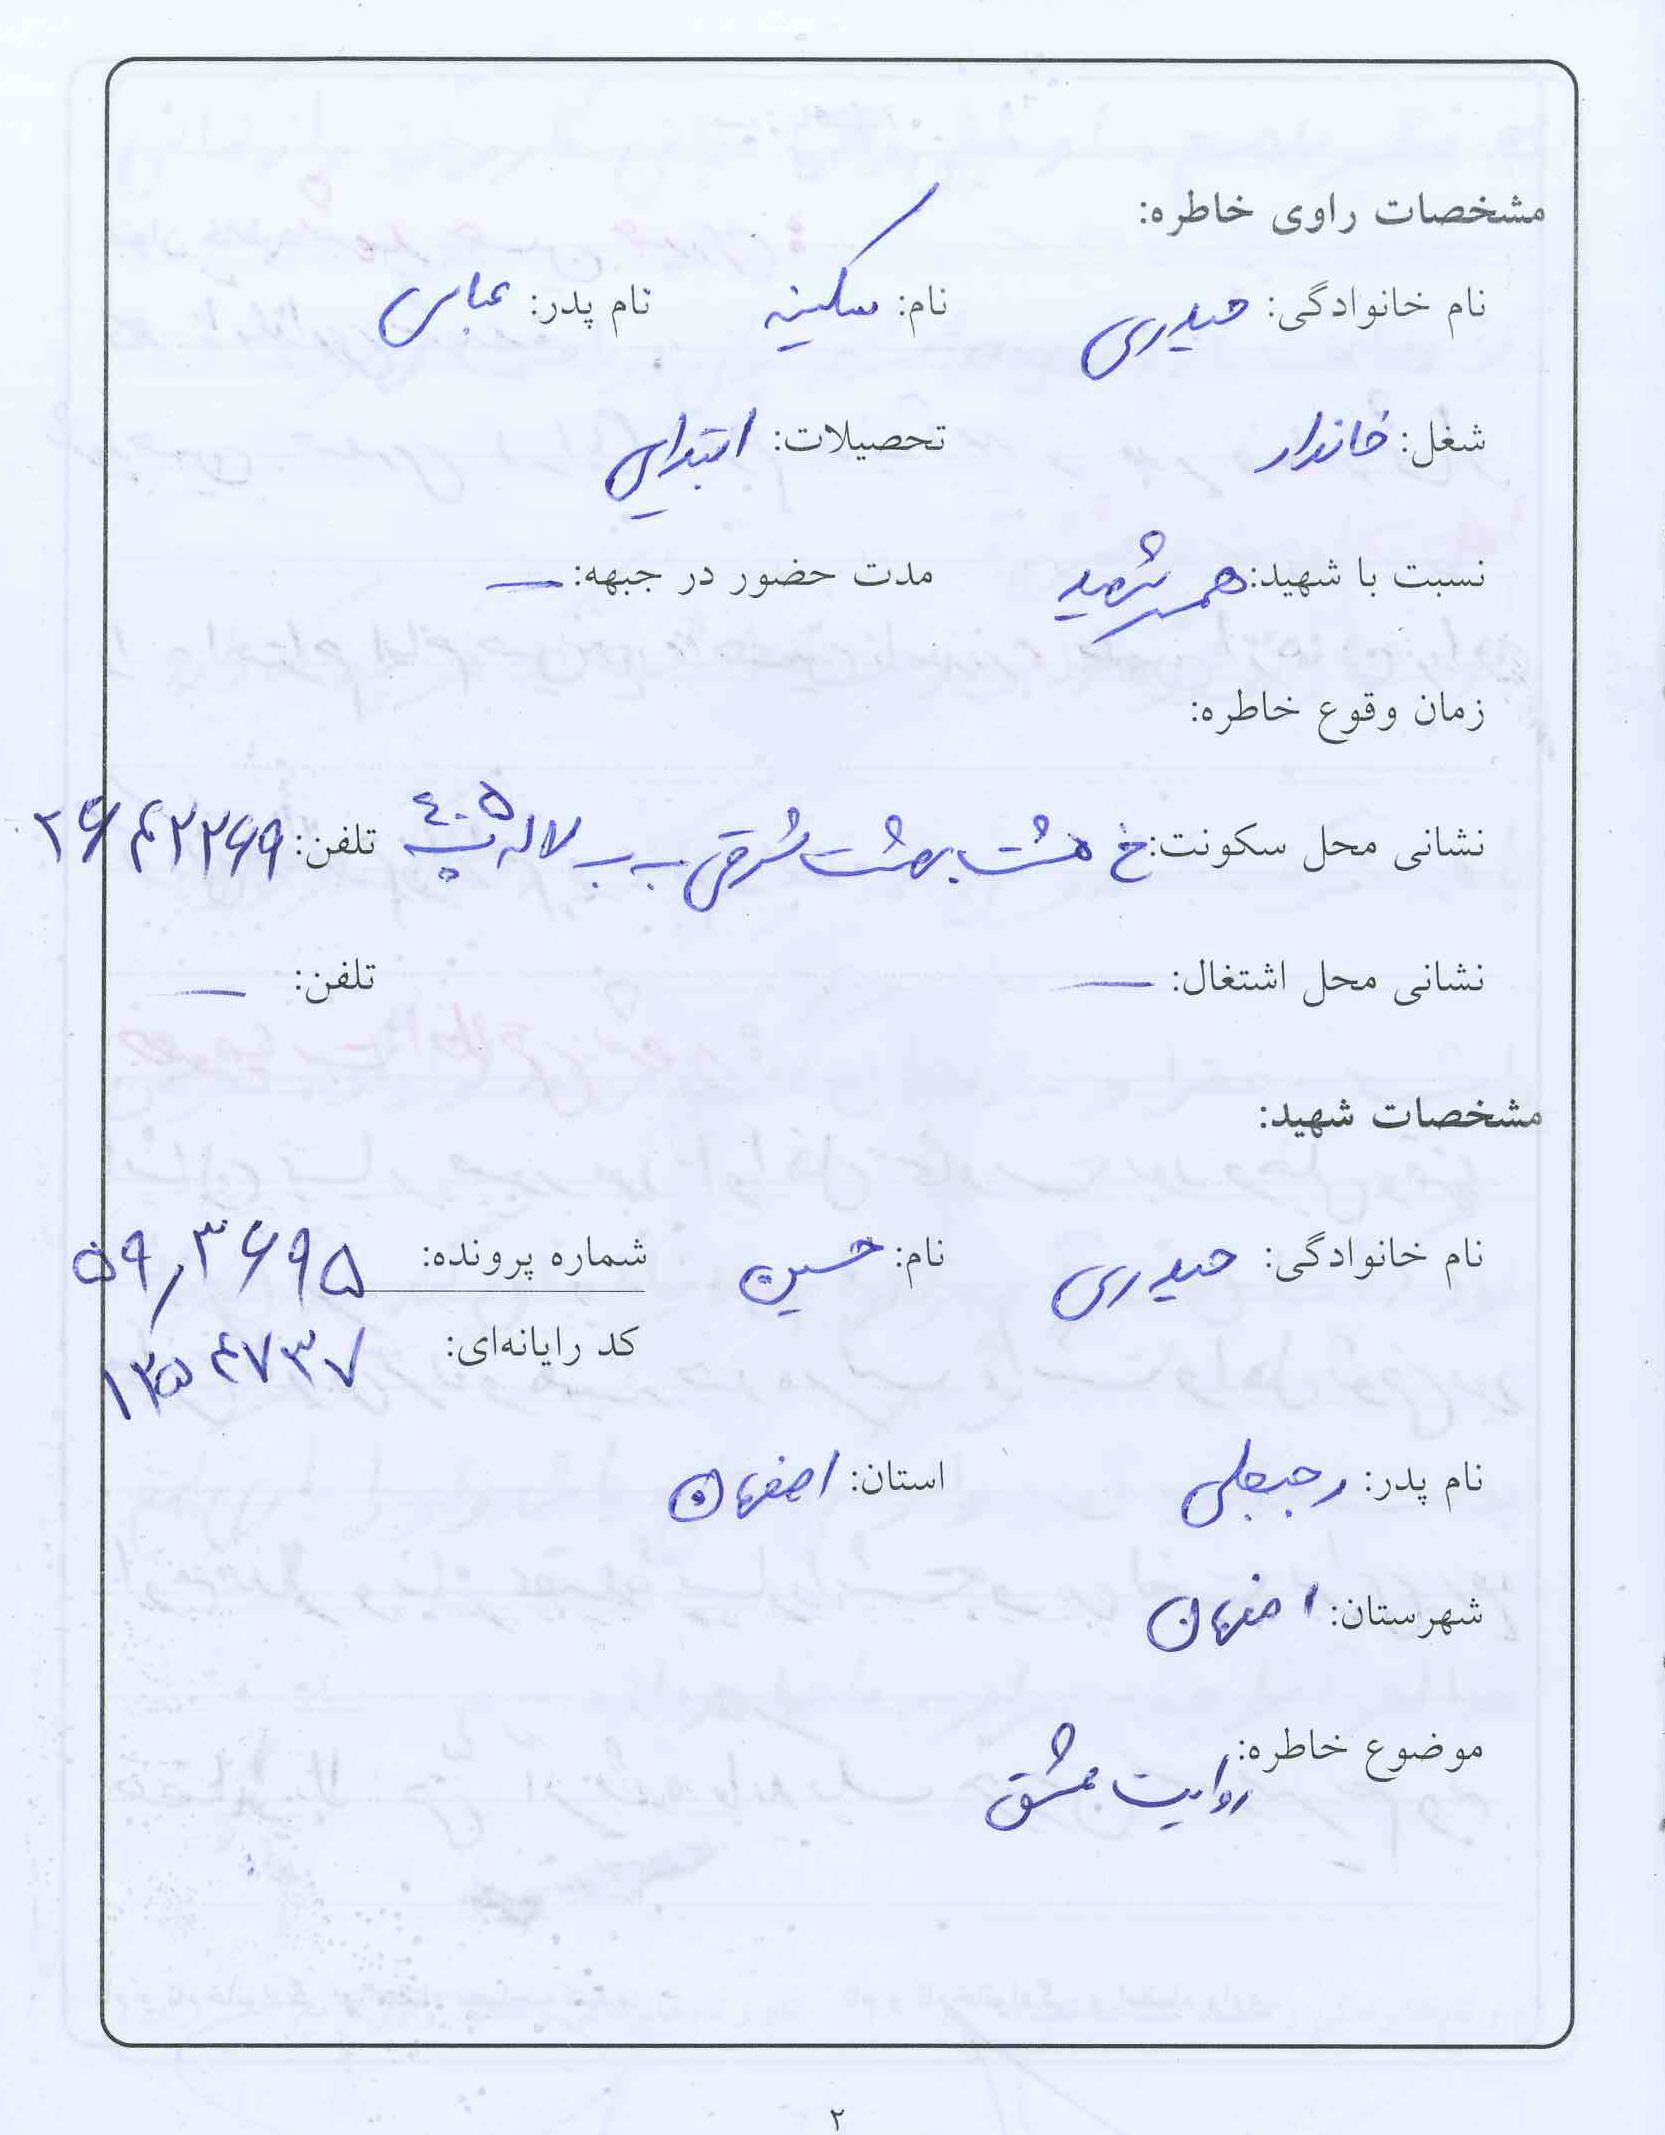 مشخصات راوی خاطره:
نام خانوادگی: حیدری نام: سکینه نام پدر: عباس
شغل: خاندار تحصیلات: ابتدایی
نسبت با شهید: همسر شهید مدت حضور در جبهه: —
زمان وقوع خاطره:
نشانی محل سکونت: خ هشت بهشت شرقی - ب لاله پ ۴۰۵ تلفن:
نشانی محل اشتغال: — تلفن: —
مشخصات شهید:
نام خانوادگی: حیدری نام: حسین شماره پرونده: ۵۹٫۳۶۹۵
کد رایانه‌ای: ۱۲۵۴۷۳۷
نام پدر: رجبعلی استان: اصفهان
شهرستان: اصفهان
موضوع خاطره: روایت عشق
۲